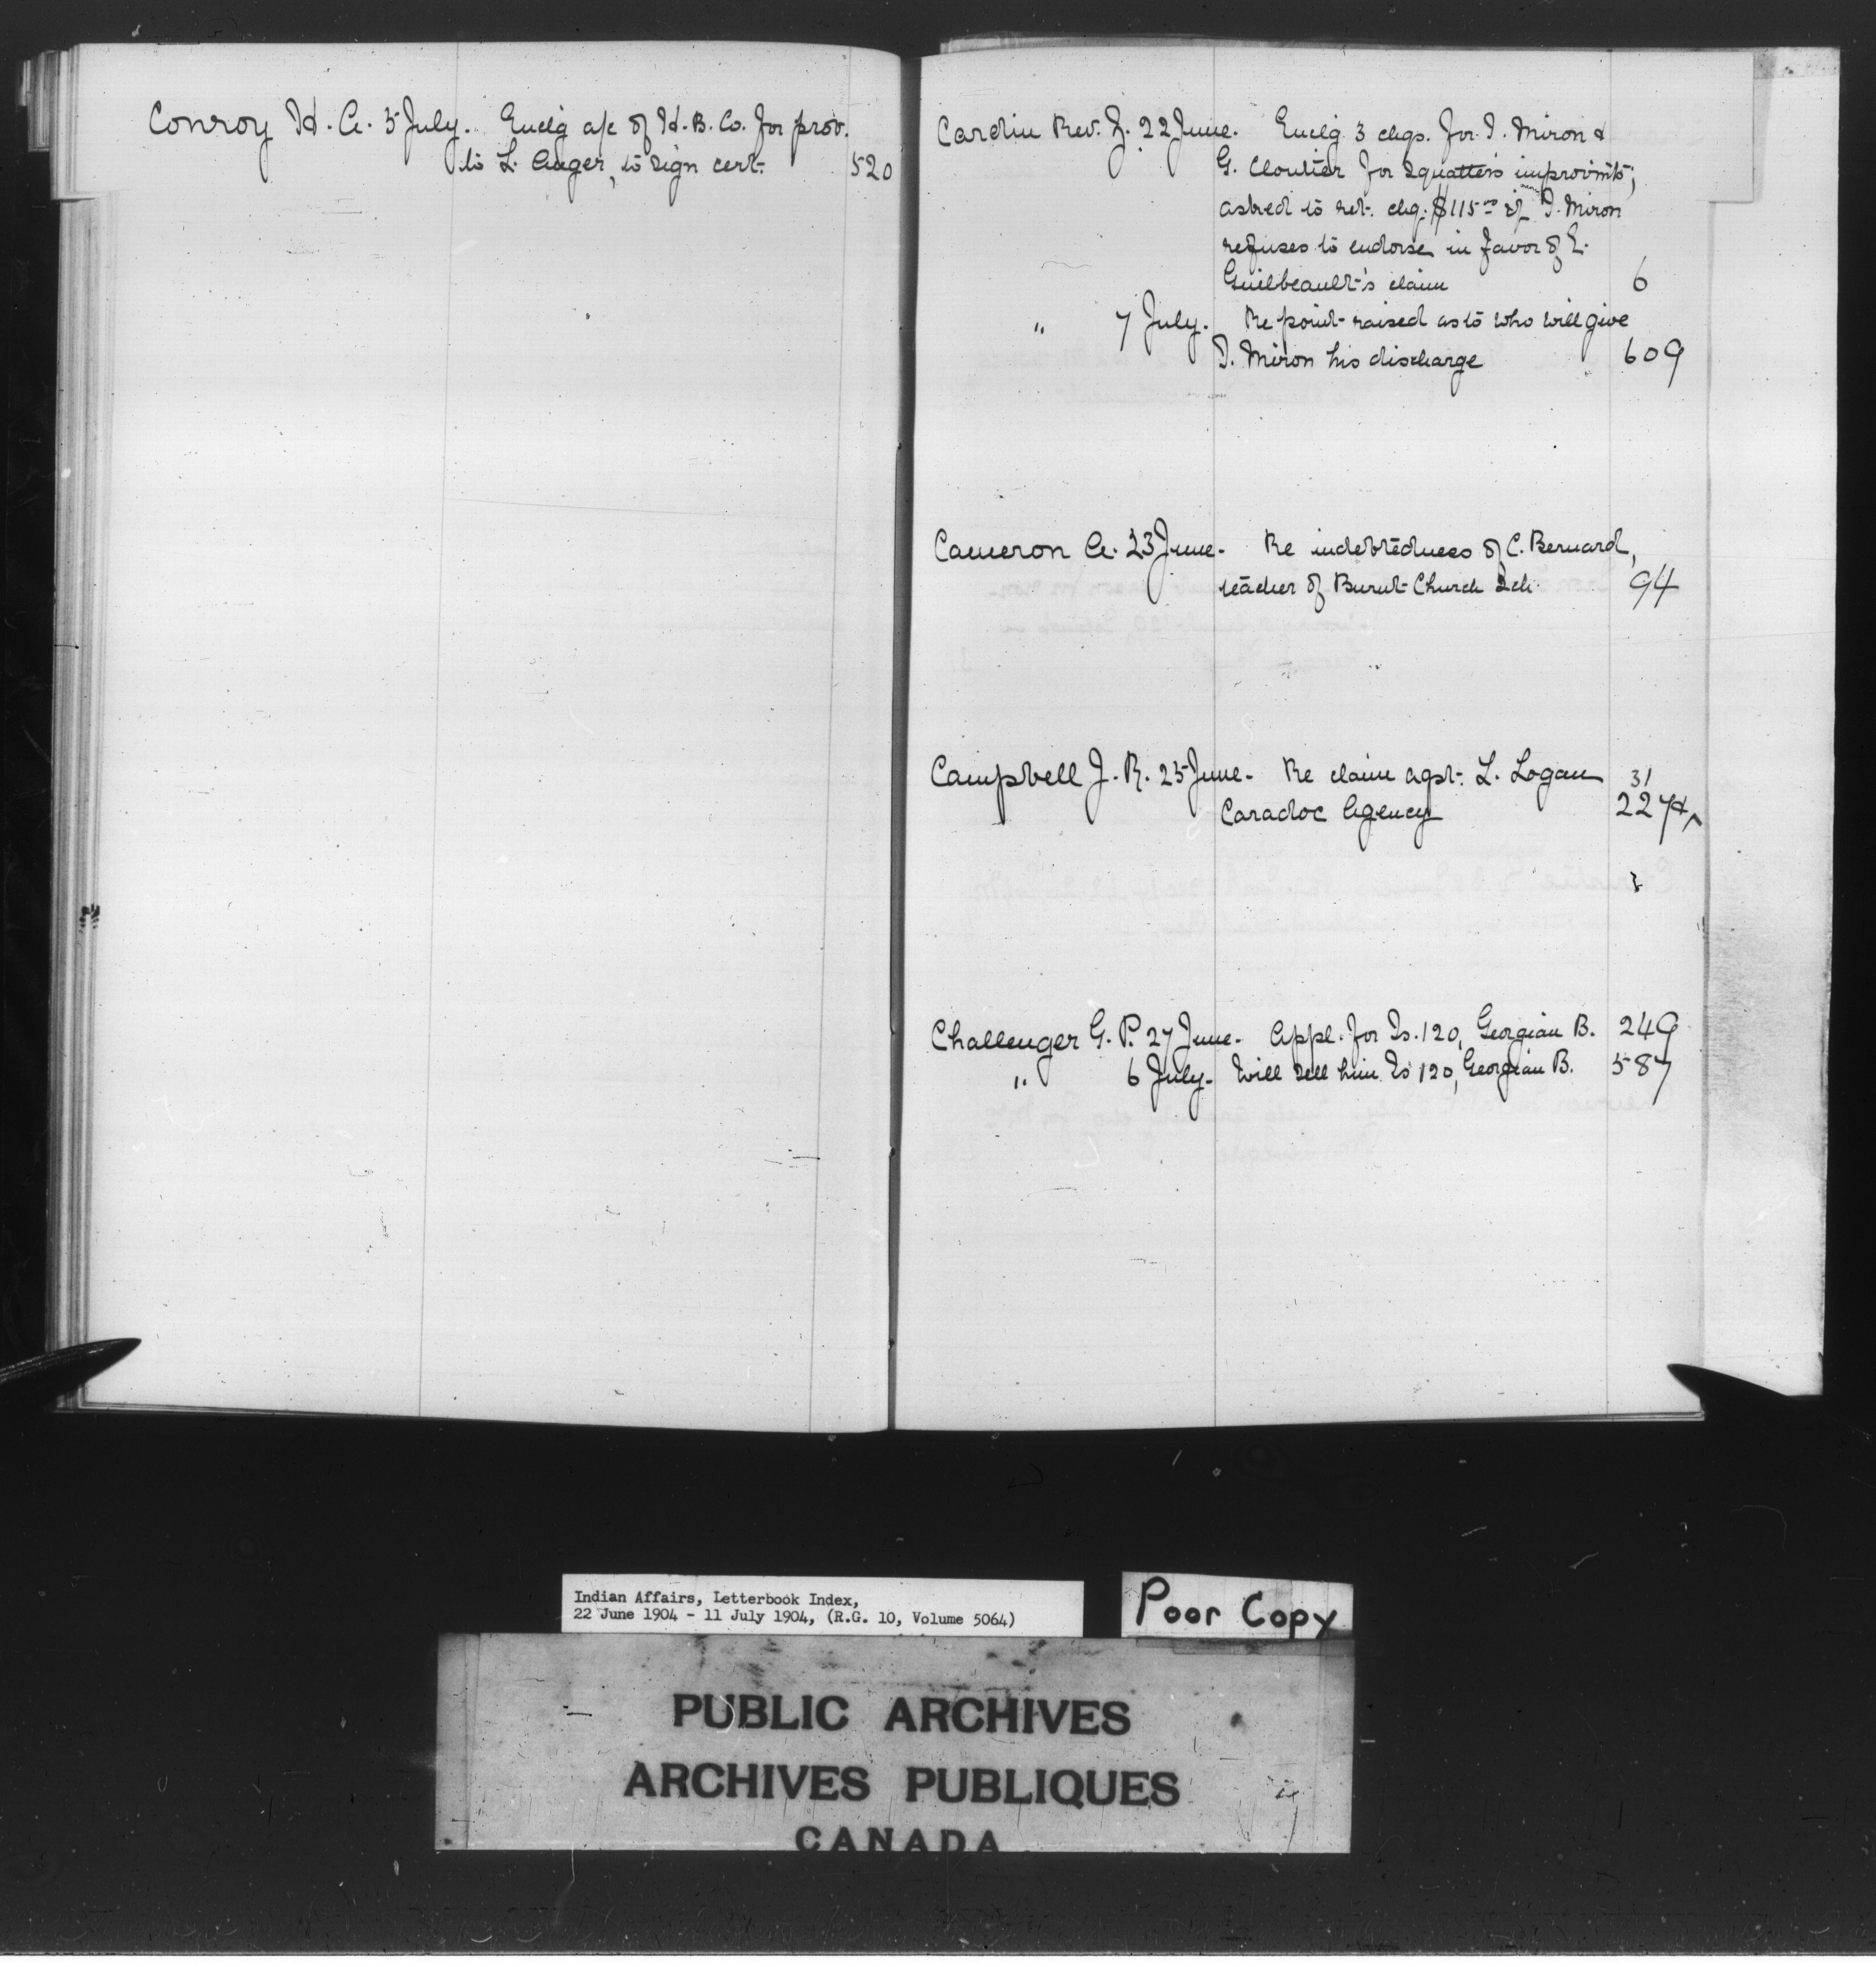 Conroy H. A. 5 July. Enclg a/c of H. B. Co. for prov.
to L. Auger, to sign cert. 520
Cardin Rev. J. 22 June. Enclg 3 chqs. for T. Miron &
G. Cloutier for squatters improvmts;
asked to ret. chq. $115.00 if T. Miron
refuses to endorse in favor of E.
Guilbeault's claim 6
" 7 July. Re point raised as to who will give
T. Miron his discharge 609
Cameron A. 23 June. Re indebtedness of C. Bernard,
teacher of Burnt Church Sch. 94
Campbell J. R. 25 June. Re claim agst. L. Logan 31
Caradoc Agency 227
Challenger G. P. 27 June. Appl. for Is. 120, Georgian B. 249
" 6 July. Will sell him Is 120, Georgian B. 587
Indian Affairs, Letterbook Index,
22 June 1904 - 11 July 1904, (R.G. 10, Volume 5064)
Poor Copy
PUBLIC ARCHIVES
ARCHIVES PUBLIQUES
CANADA